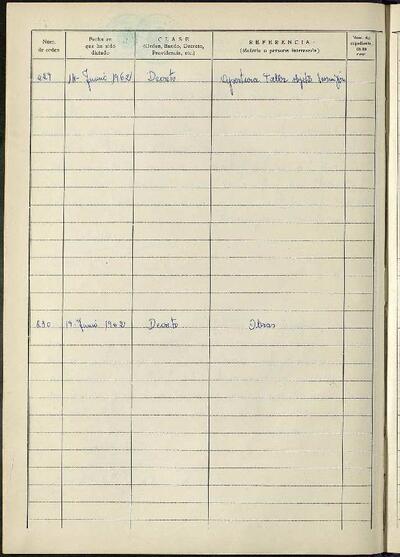 Núm. de orden
Fecha en que ha sido dictado
CLASE (Orden, Bando, Decreto, Providencia, etc.)
REFERENCIA (Materia o persona interesada)
Núm. del expediente en su caso
229 14- Junio 1962 Decreto Apertura Taller
230 19- Junio 1962 Decreto Obras